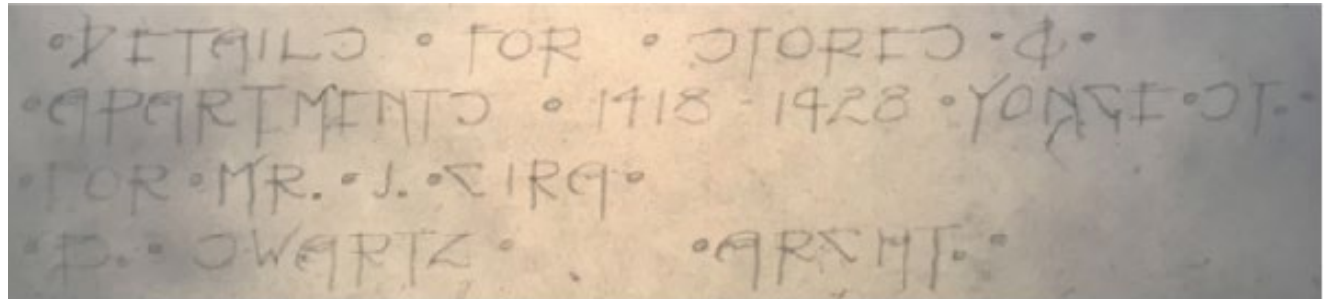 ·DETAILS · FOR · STORES · & ·
·APARTMENTS · 1418 - 1428 ·YONGE·ST.·
·FOR·MR.·J.·CIRA·
·B.·SWARTZ· ·ARCHT.·